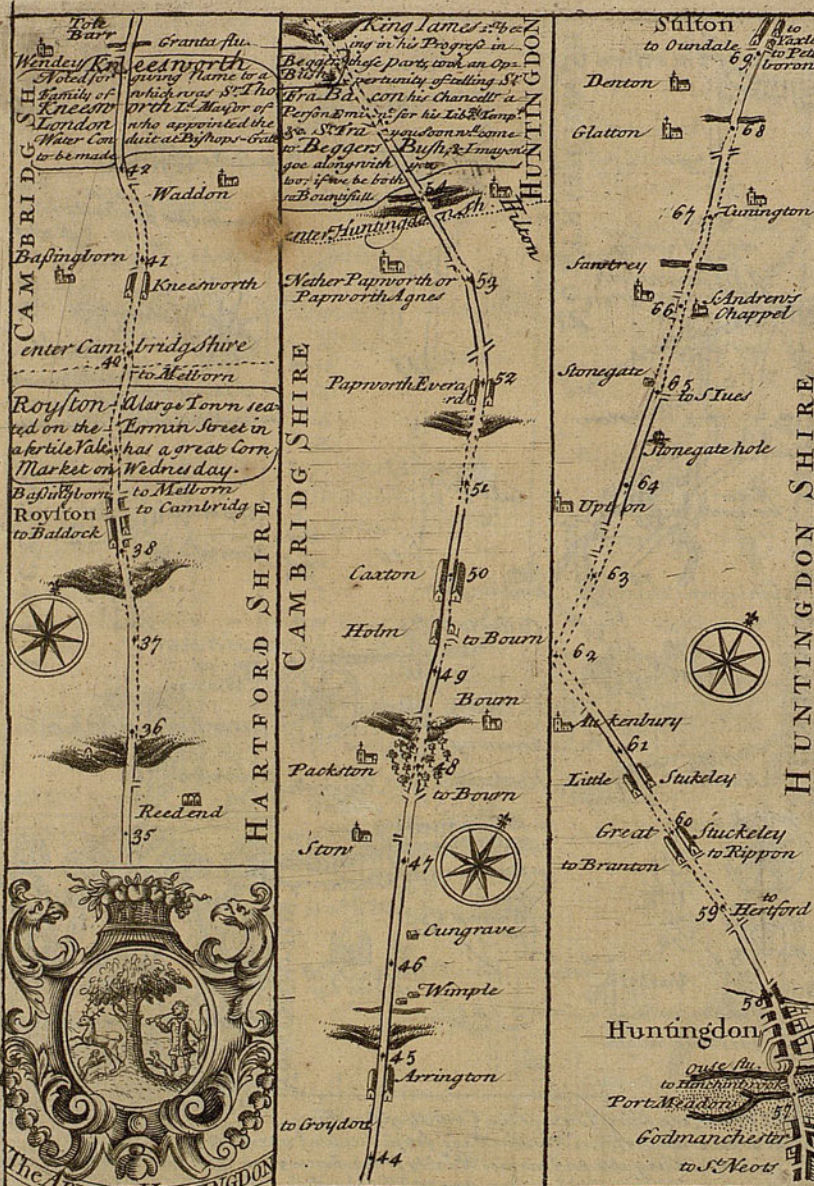 Tole
Barr
Granta flu.
Wendey
Kneesworth
Noted for giving name to a
Family of which was Sr. Tho
Kneesworth Ld. Maior of
London who appointed the
Water Conduit at Bishops-Gate
to be made
CAMBRIDG SH
42
Waddon
Baßingborn
41
Kneesworth
enter Cambridg Shire
40
to Melborn
Royston A large Town sea-
ted on the Ermin Street in
a fertile Vale has a great Corn
Market on Wednesday.
Baßingborn
to Melborn
Royston
to Cambridg
to Baldock
38
37
36
Reedend
35
HARTFORD SHIRE
The
HUNTINGDON
King Iames
being in his Progress in
these parts, took an Op-
pertunity of telling Sr.
Beggers
Bush
Fra Bacon his Chancellr. a
Person
for his
Sr. Fra you soon
come
to Beggers Bush, & I may en
goe along with you
too, if we be both
so Bountifull
HUNTINGDON
54
Hilton
enter Huntingdonsh
Nether Papworth or
Papworth Agnes
53
Papworth Evera
rd
52
CAMBRIDG SHIRE
51
Caxton
50
Holm
to Bourn
49
Bourn
Packston
48
to Bourn
Stow
47
Cungrave
46
Wimple
45
Arrington
to Croydon
44
Stilton
to Oundale
to
Yaxle
to Pet
boron
69
Denton
Glatton
68
67
Cunington
Sawtrey
66
S. Andrews
Chappel
Stonegate
65
to S. Iues
Stonegate hole
64
Upton
63
62
HUNTINGDON SHIRE
Aukenbury
61
Little
Stukeley
60
Great
Stuckeley
to Rippon
to Branton
to
Hertford
59
58
Huntingdon
Ouse flu.
to Hinchinbrook
Port Meadow
57
Godmanchester
to St. Neots